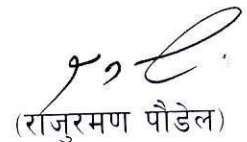 (राजुरमण पौडेल)